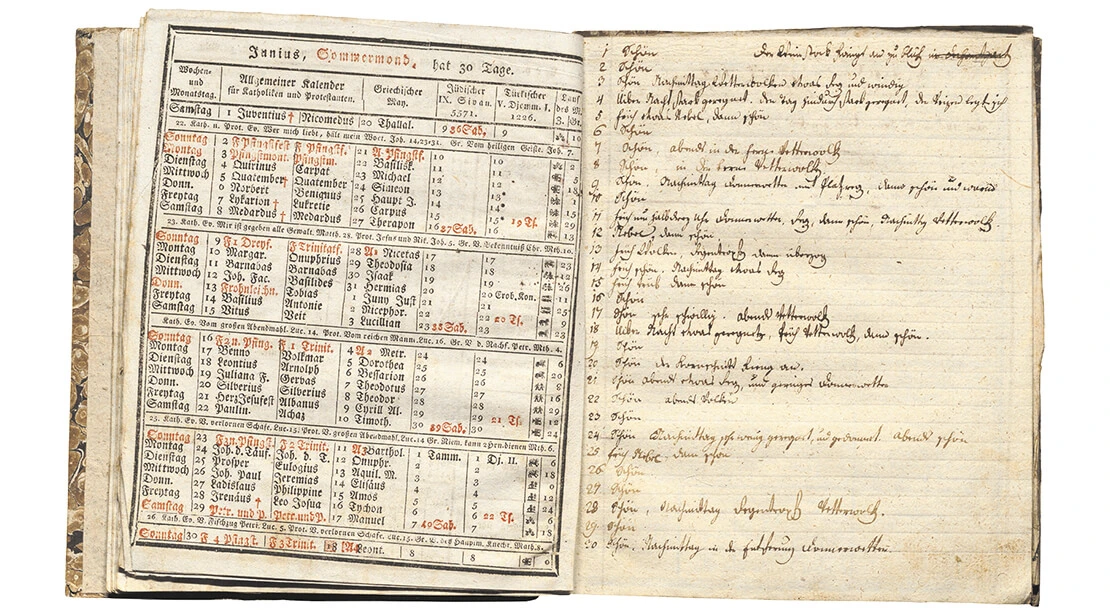 Junius, Sommermond, hat 30 Tage.
Wochen- und Monatstag. Allgemeiner Kalender für Katholiken und Protestanten. Griechischer May. Jüdischer IX. Sivan. 5571. Türkischer V. Djemm. I. 1226. Lauf des M.
Samstag 1 Juventius† Nicomedus 20 Thallal. 9 36 Sab. 9
22. Kath. u. Prot. Ev. Wer mich liebt, hält mein Wort. Joh. 14,23-31. Gr. Vom heiligen Geiste. Joh. 7.
Sonntag 2 F Pfingstfest F Pfingstf. 21 A Pfingstf. 10 10
Montag 3 Pfingstmont. Pfingstm. 22 Basilisk. 11 11
Dienstag 4 Quirinus Carpat 23 Michael 12 12
Mittwoch 5 Quatember† Quatember 24 Simeon 13 13
Donn. 6 Norbert Benignus 25 Haupt J. 14 14
Freytag 7 Lykarion† Lukretie 26 Carpus 15 15
Samstag 8 Medardus† Medardus 27 Therapon 16 37 Sab. 16 19 Tf.
23. Kath. Ev. Mir ist gegeben alle Gewalt. Matth. 28. Prot. Jesus und Nik. Joh. 3. Gr. V. Bekenntniß Chr. Mth. 10.
Sonntag 9 F 1 Dreyf. F Trinitatf. 28 A 1 Nicetas 17 17
Montag 10 Margar. Onuphrius 29 Theodosia 18 18
Dienstag 11 Barnabas Barnabas 30 Isaak 19 19
Mittwoch 12 Joh. Fac. Basilides 31 Hermias 20 20 Erob. Kon.
Donn. 13 Frohnleichn. Tobias 1 Juny Just 21 21
Freytag 14 Basilius Antonie 2 Nicephor. 22 22 20 Tf.
Samstag 15 Vitus Veit 3 Lucillian 23 38 Sab. 23
Kath. Ev. Vom großen Abendmahl. Luc. 14. Prot. Vom reichen Mann. Luc. 16. Gr. V. d. Nachf. Petr. Mth. 4.
Sonntag 16 F 2 n. Pfing. F 1 Trinit. 4 A 2 Metr. 24 24
Montag 17 Benno Volkmar 5 Dorothea 25 25
Dienstag 18 Leontius Arnolph 6 Bessarion 26 26
Mittwoch 19 Juliana F. Gervas 7 Theodotus 27 27
Donn. 20 Silverius Silverius 8 Theodor 28 28
Freytag 21 Herz Jesufest Albanus 9 Cyrill Al. 29 29 21 Tf.
Samstag 22 Paulin. Achaz 10 Timoth. 30 39 Sab. 30
25. Kath. Ev. V. verlornen Schafe. Luc. 15. Prot. V. großen Abendmahl. Luc. 14 Gr. Niem. kann 2 Hrn. dienen Mth. 6.
Sonntag 23 F 3 n. Pfingst. F 2 Trinit. 11 A 3 Barthol. 1 Tamm. 1 Dj. II.
Montag 24 Joh. d. Tauf. Joh. d. T. 12 Onuphr. 2 2
Dienstag 25 Prosper Eulogius 13 Aquil. M. 3 3
Mittwoch 26 Joh. Paul Jeremias 14 Elisäus 4 4
Donn. 27 Ladislaus Philippine 15 Amos 5 5
Freytag 28 Irenäus† Leo Josua 16 Tychon 6 6 22 Tf.
Samstag 29 Petr. und P. Petr. und P. 17 Manuel 7 40 Sab. 7
26. Kath. Ev. V. Fischzug Petri. Luc. 5. Prot. V. verlornen Schafe. Luc. 15. Gr. V. des Hauptm. Knecht. Math. 8.
Sonntag 30 F 4 Pfingst. F 3 Trinit. 18 A 4 Leont. 8 8
1 Schön Der Weinstock fängt an zu blühen
2 Schön
3 Schön Nachmittag Wetterwolken etwas Reg und windig
4 Ueber Nacht stark geregnet. den Tag hindurch stark geregnet,
5 früh etwas Nebel, dann schön
6 Schön
7 Schön, abends in der Ferne Wetterwolk
8 Schön, in der Ferne Wetterwolk
9 Schön. Nachmittag Donnerwetter mit Platzreg, dann schön und warm
10 Schön
11 Donnerwetter, Reg, dann schön, Nachmittag Wetterwolk.
12 Nebel, dann schön
13 früh
14 früh schön. Nachmittag etwas Reg
15 früh trüb dann schön
16 Schön
17 Schön sehr schwillig. abends Wetterwolk
18 Ueber Nacht etwas geregnet, früh Wetterwolk, dann schön.
19 Schön
20 Schön der Kornschnitt fieng an.
21 Schön abends etwas Reg und geringes Donnerwetter
22 Schön abends Wolken
23 Schön
24 Schön Nachmittag sehr wenig geregnet, und gedonnert. abends schön
25 früh Nebel, dann schön
26 Schön
27 Schön
28 Schön, Nachmittag Wetterwolk.
29 Schön
30 Schön, Nachmittag in der Entfernung Donnerwetter.